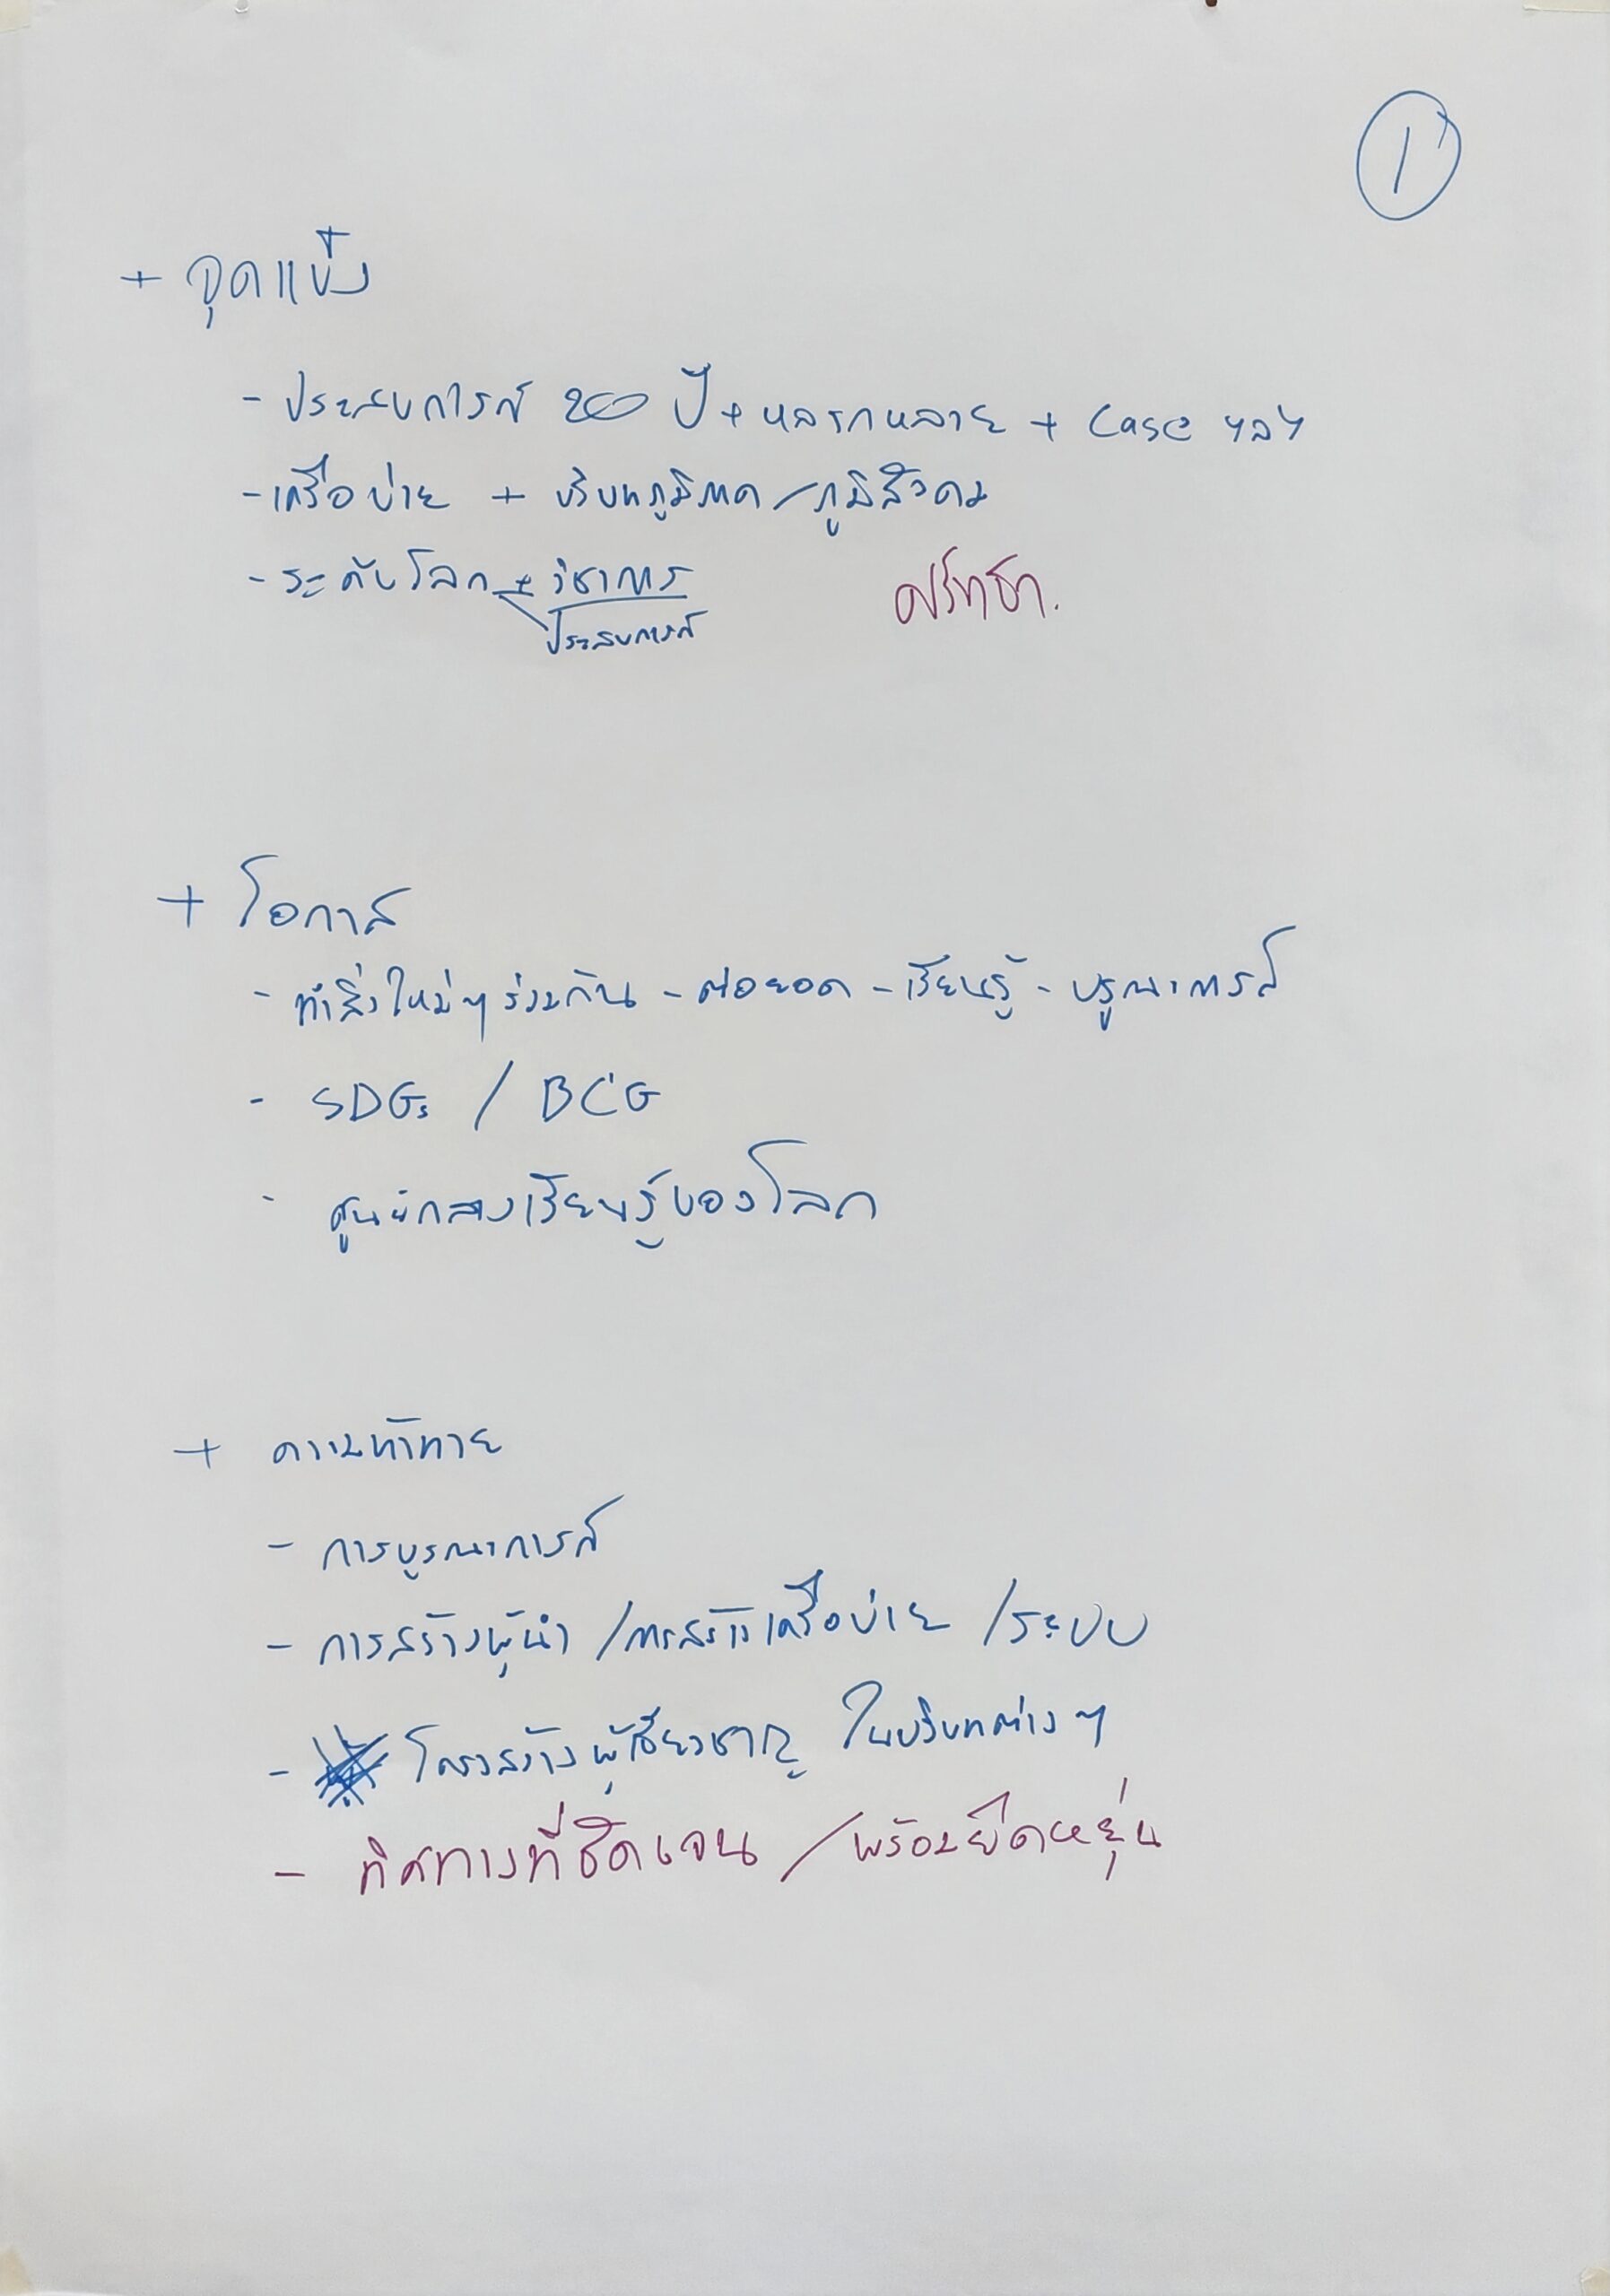 1
+ จุดแข็ง
- ประสบการณ์ 200 ปี + หลากหลาย + Case ฯลฯ
- เครือข่าย + บริบทภูมิภาค / ภูมิสังคม
- ระดับโลก + วิชาการ
ประสบการณ์
ศรัทธา.
+ โอกาส
- ทำสิ่งใหม่ๆ ร่วมกัน - ต่อยอด - เรียนรู้ - บูรณาการ์
- SDGs / BCG
- ศูนย์กลางเรียนรู้ของโลก
+ ความท้าทาย
- การบูรณาการ์
- การสร้างผู้นำ / การสร้างเครือข่าย / ระบบ
- โครงสร้างผู้เชี่ยวชาญ ในบริบทต่างๆ
- ทิศทางที่ชัดเจน / พร้อมยืดหยุ่น